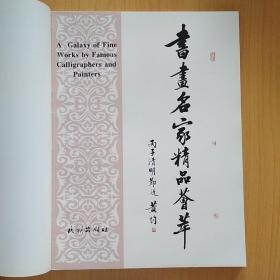 A Galaxy of Fine
Works by Famous
Calligraphers and
Painters
書畫名家精品薈萃
丙子清明節近